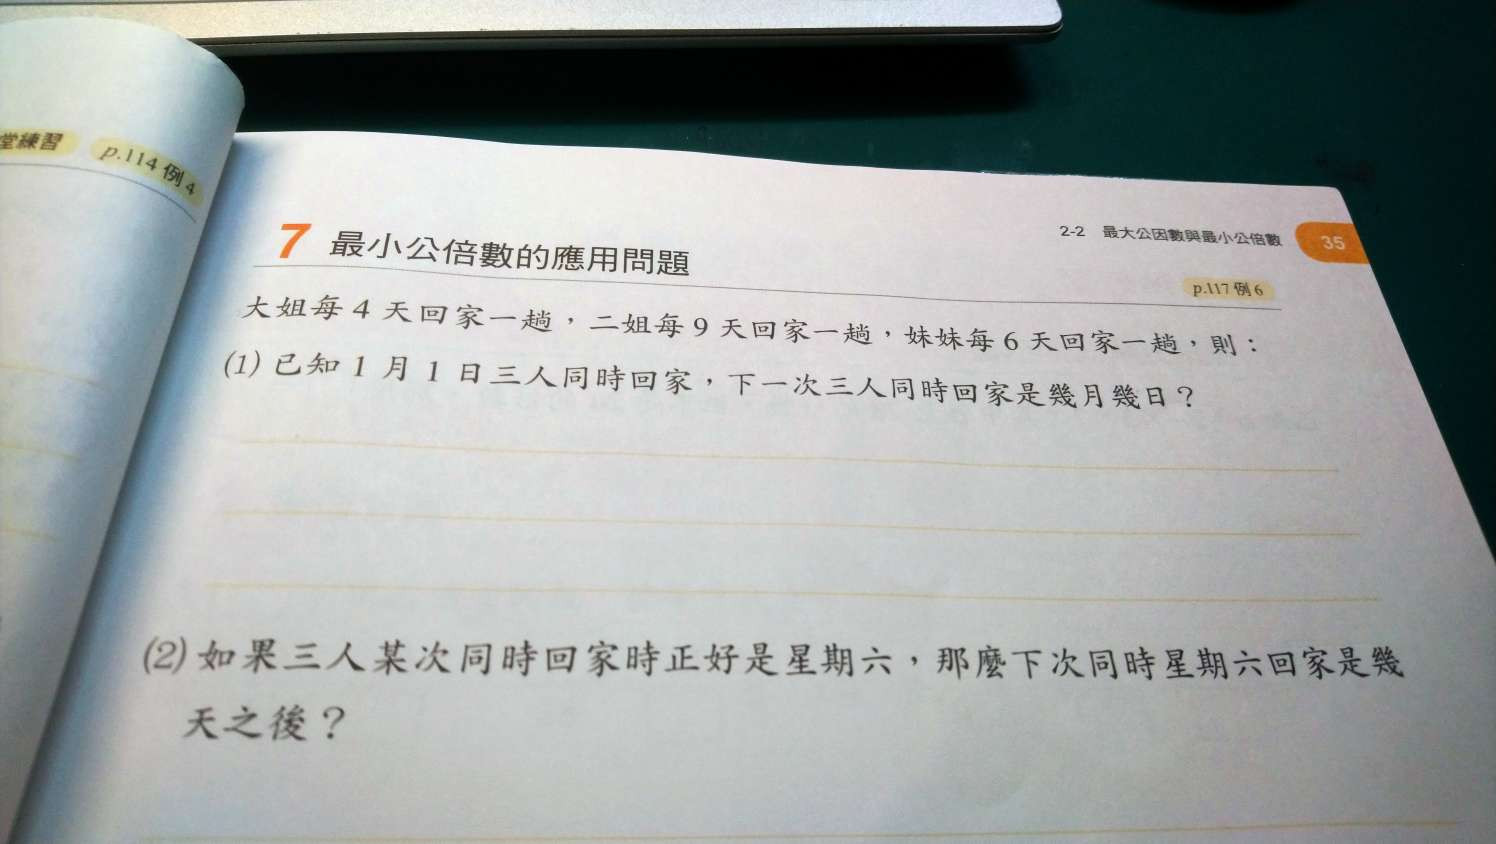 堂練習
p.114 例 4
2-2 最大公因數與最小公倍數 35
7 最小公倍數的應用問題
p.117 例 6
大姐每 4 天回家一趟，二姐每 9 天回家一趟，妹妹每 6 天回家一趟，則：
(1) 已知 1 月 1 日三人同時回家，下一次三人同時回家是幾月幾日？
(2) 如果三人某次同時回家時正好是星期六，那麼下次同時星期六回家是幾
天之後？